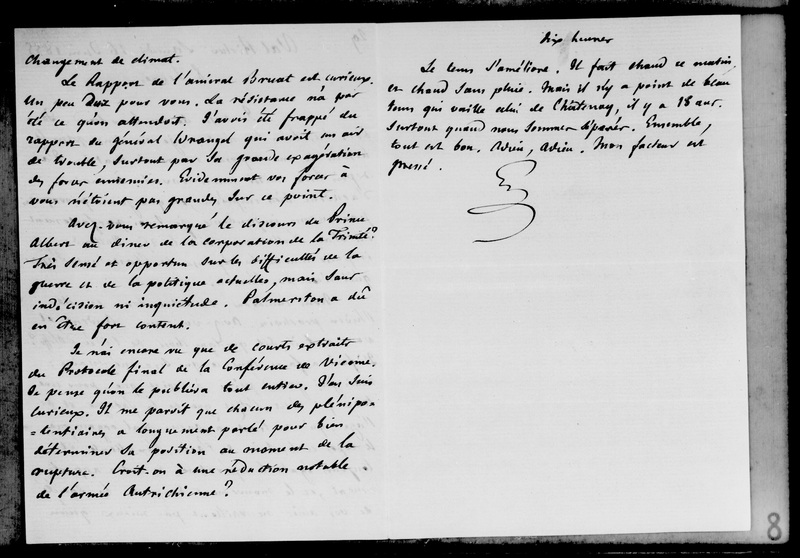 changement de climat.
Le Rapport de l'amiral Bruat est curieux.
Un peu dur pour vous. La résistance n'a pas
été ce qu'on attendoit. J'avois été frappé du
rapport du général Wrangel qui avoit un air
de trouble, surtout par sa grande exagération
des forces ennemies. Evidemment vos forces à
vous n'étoient pas grandes sur ce point.
Avez-vous remarqué le discours du Prince
Albert au diner de la corporation de la Trinité?
Très sensé et opportun sur les difficultés de la
guerre et de la politique actuelles, mais sans
indécision ni inquiétude. Palmerston a dû
en être fort content.
Je n'ai encore vu que de courts extraits
du Protocole final de la Conférence de Vienne.
Je pense qu'on le publiera tout entier. J'en suis
curieux. Il me paroit que chacun des plénipo
=tentiaires a longuement parlé pour bien
déterminer sa position au moment de la
rupture. Croit-on à une réduction notable
de l'armée Autrichienne?
Dix heures
Le tems s'améliore. Il fait chaud ce matin,
et chaud sans pluie. Mais il n'y a point de beau
tems qui vaille celui de Châtenay, il y a 18 ans.
Surtout quand nous sommes séparés. Ensemble,
tout est bon. Adieu, Adieu. Mon facteur est
pressé.
8